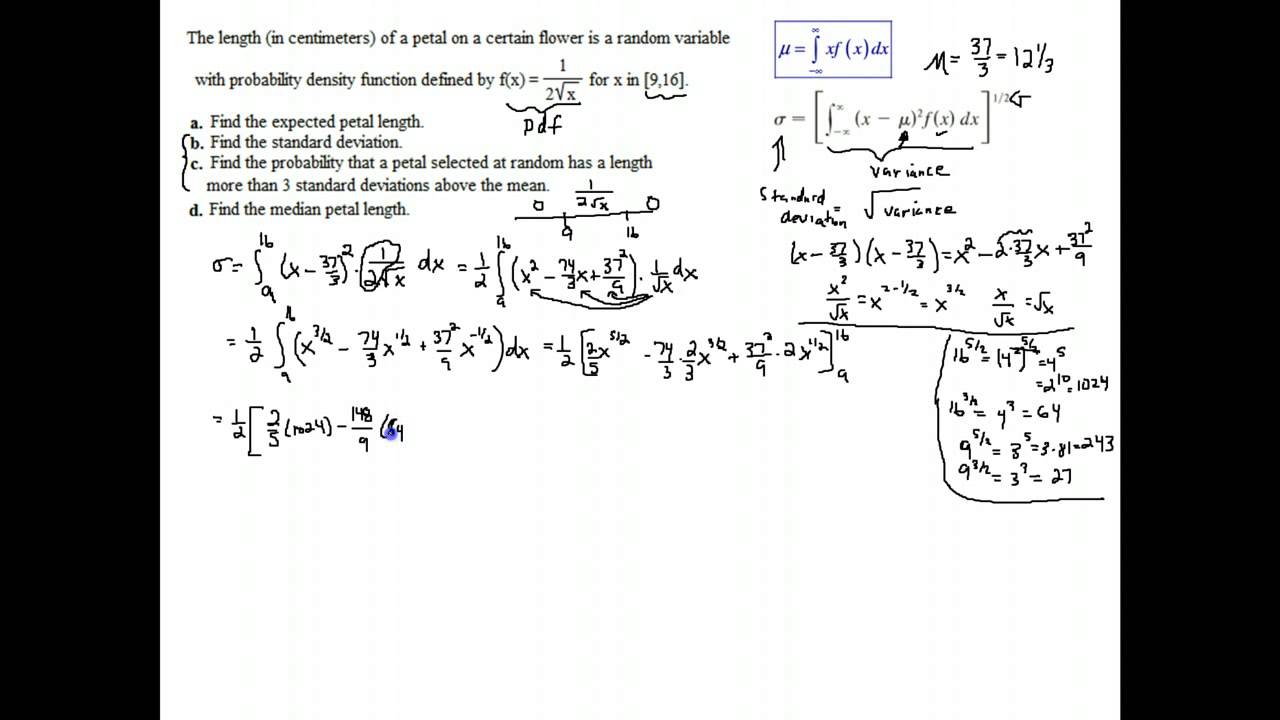 The length (in centimeters) of a petal on a certain flower is a random variable
with probability density function defined by f(x) = 1/(2√x) for x in [9,16].
pdf
a. Find the expected petal length.
b. Find the standard deviation.
c. Find the probability that a petal selected at random has a length
more than 3 standard deviations above the mean.
d. Find the median petal length.
0 1/(2√x) 0
9 16
μ = ∫_{-∞}^{∞} x f(x) dx
M = 37/3 = 12 1/3
σ = [∫_{-∞}^{∞} (x − μ)² f(x) dx]^{1/2}
variance
standard deviation = √variance
(x − 37/3)(x − 37/3) = x² − 2·37/3 x + 37²/9
x²/√x = x^{2-1/2} = x^{3/2} x/√x = √x
σ = ∫_9^16 (x − 37/3)² · (1/(2√x)) dx = 1/2 ∫_9^16 (x² − 74/3 x + 37²/9) · 1/√x dx
= 1/2 ∫_9^16 (x^{3/2} − 74/3 x^{1/2} + 37²/9 x^{-1/2}) dx = 1/2 [2/5 x^{5/2} − 74/3 · 2/3 x^{3/2} + 37²/9 · 2x^{1/2}]_9^16
= 1/2 [2/5 (1024) − 148/9 (64
16^{5/2} = (4²)^{5/2} = 4^5
= 2^10 = 1024
16^{3/2} = 4³ = 64
9^{5/2} = 3^5 = 3·81 = 243
9^{3/2} = 3³ = 27